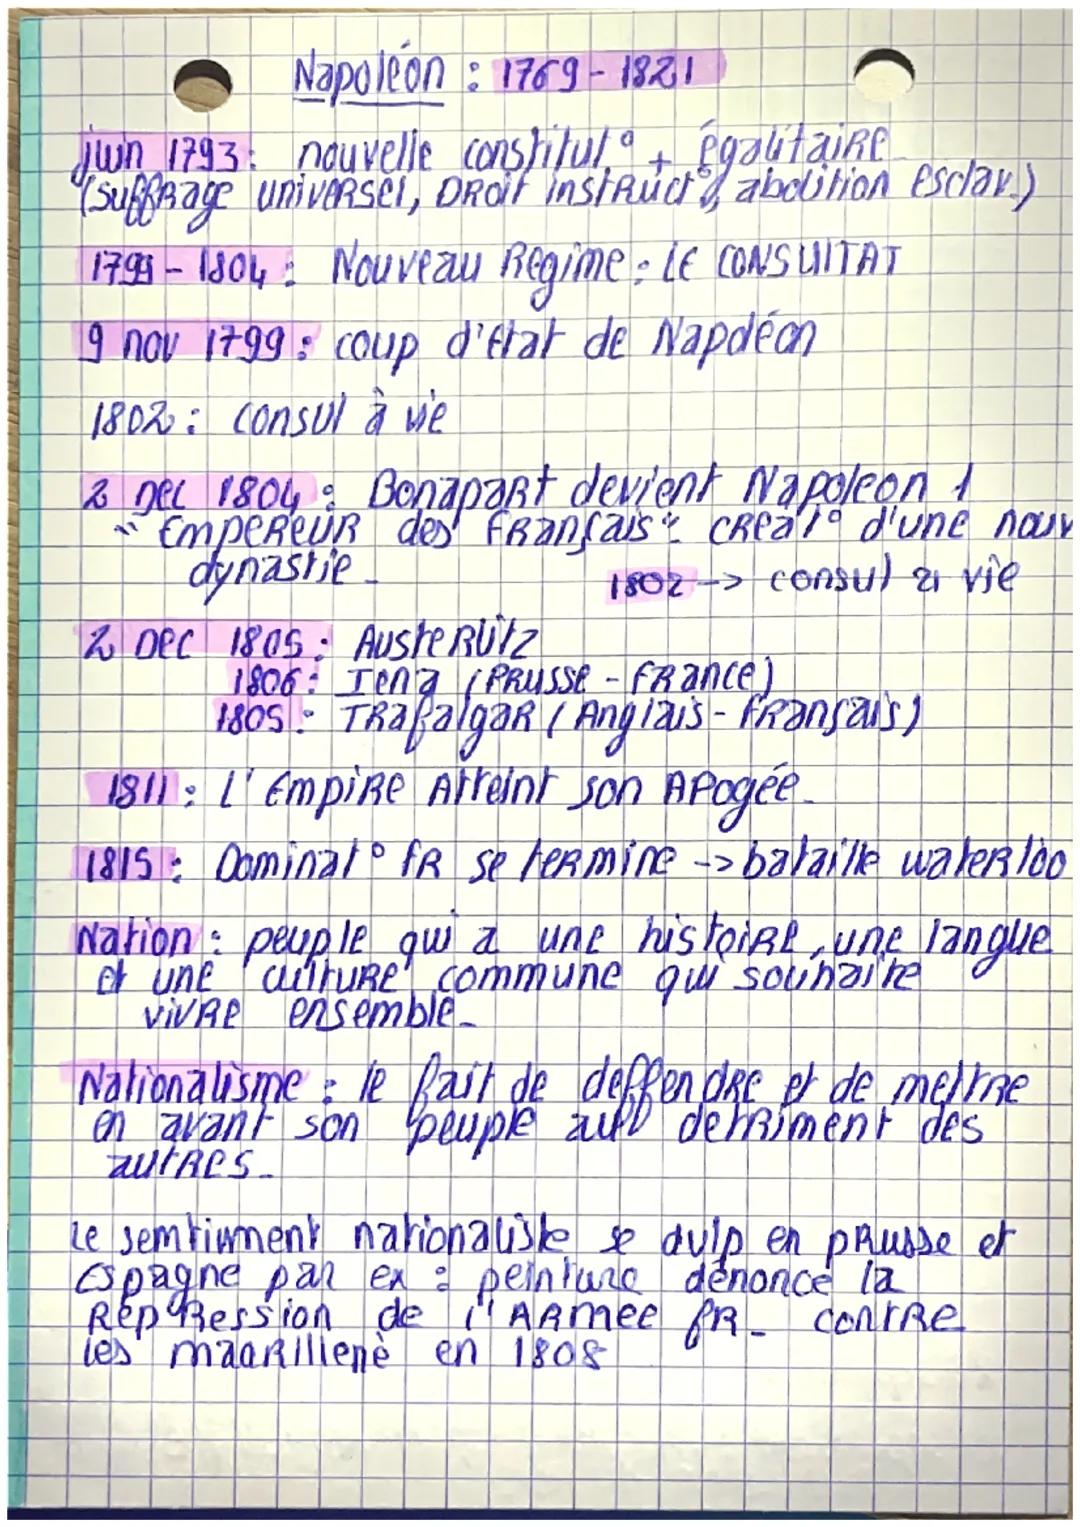 Napoléon : 1769 - 1821
juin 1793 : nouvelle constitut° + égalitaire
(suffrage universel, Droit instruct°, abolition esclav.)
1799 - 1804 : Nouveau Regime : LE CONSULTAT
9 nov 1799 : coup d'état de Napoléon
1802 : consul à vie
2 Dec 1804 : Bonapart devient Napoleon 1
"Empereur des Français" : creat° d'une nouv
dynastie
1802 -> consul à vie
2 Dec 1805 : Austerlitz
1806 : Iena (Prusse - France)
1805 : Trafalgar (Anglais - Français)
1811 : L'Empire Atteint son Apogée.
1815 : Dominat° fR se termine -> bataille waterloo
Nation : peuple qui a une histoire, une langue
et une culture commune qui souhaite
vivre ensemble.
Nationalisme : le fait de deffendre et de mettre
en avant son peuple au detriment des
autres.
Le semtimment nationaliste se dvlp en prusse et
Espagne par ex : peinture dénonce la
Repression de l'Armee fR contre
les maarillenè en 1808